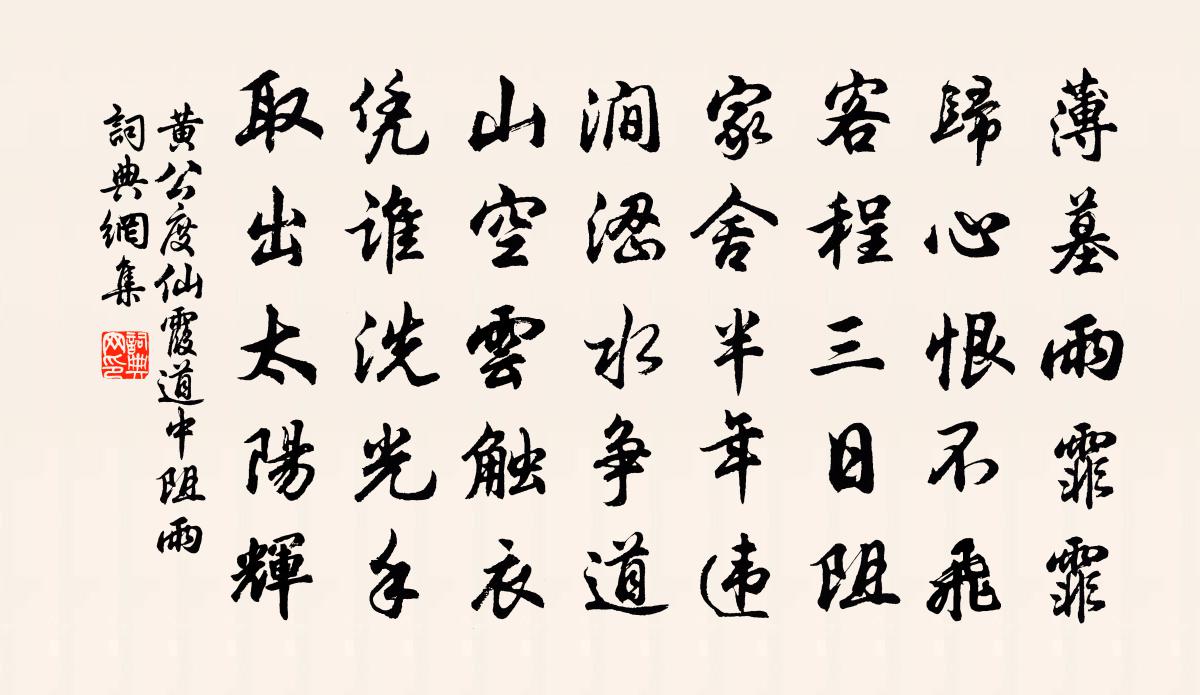 薄墓雨霏霏
歸心恨不飛
客程三日阻
家舍半年违
澗水争道
山空雲触衣
凭谁洗光手
取出太陽輝
黄公度仙霞道中阻雨
詞典網集
詞典网印